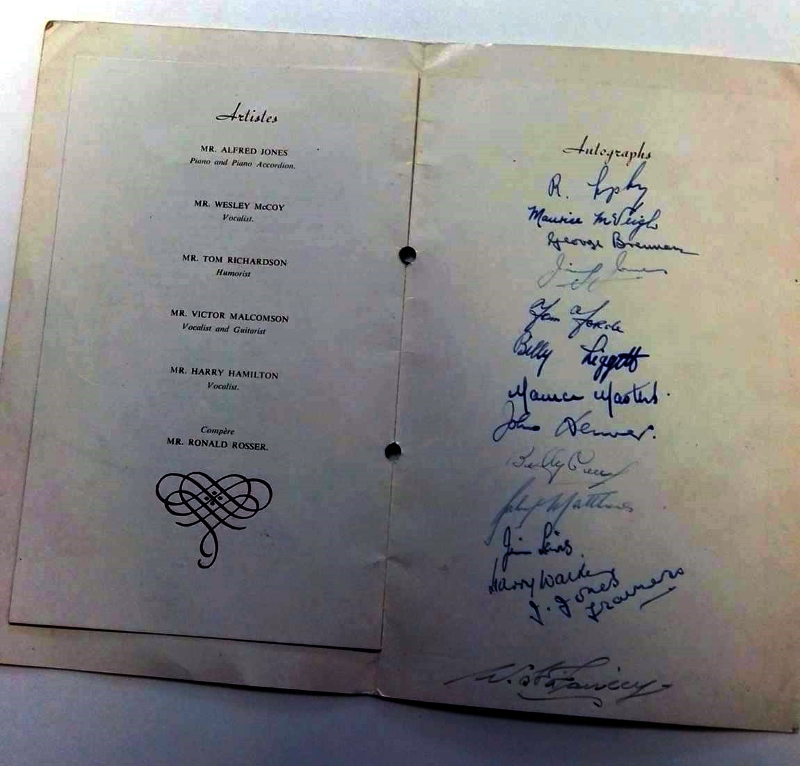 Artistes
MR. ALFRED JONES
Piano and Piano Accordion.
MR. WESLEY McCOY
Vocalist.
MR. TOM RICHARDSON
Humorist
MR. VICTOR MALCOMSON
Vocalist and Guitarist
MR. HARRY HAMILTON
Vocalist.
Compère
MR. RONALD ROSSER.
Autographs
R.
Maurice McVeigh
George Brennan
Jim Jones
Tom Forde
Billy Liggett
Maurice Masters.
John
Billy
Matthews
Jim Lewis
Harry Walker
J. Jones
Trainers